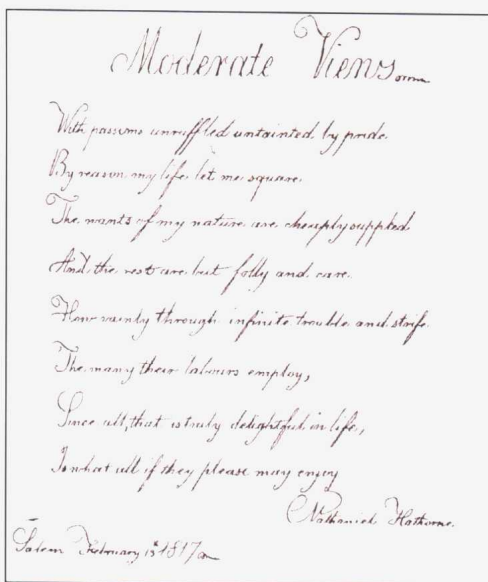 Moderate Views
With passions unruffled untainted by pride
By reason my life let me square
The wants of my nature are cheaply supplied
And the rest are but folly and care
How vainly through infinite trouble and strife
The many their labours employ,
Since all, that is truly delightful in life,
Is what all if they please may enjoy
Nathaniel Hathorne.
Salem February 13th 1817